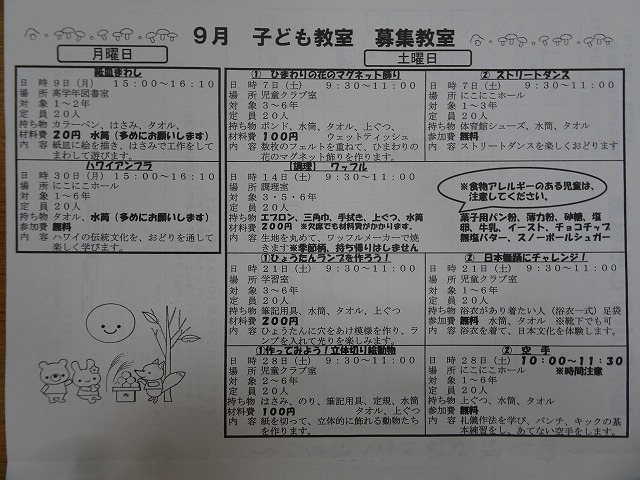 9月 子ども教室 募集教室
月曜日
紙皿まわし
日 時 9日(月) 15:00~16:10
場 所 高学年図書室
対 象 1~2年
定 員 20人
持ち物 カラーペン、はさみ、タオル、
材料費 20円 水筒(多めにお願いします)
内 容 紙皿に絵を描き、はさみで工作をして
まわして遊びます。
ハワイアンフラ
日 時 30日(月) 15:00~16:10
場 所 にこにこホール
対 象 1~6年
定 員 20人
持ち物 タオル、水筒(多めにお願いします)
参加費 無料
内 容 ハワイの伝統文化を、おどりを通して
楽しく学びます。
土曜日
① ひまわりの花のマグネット飾り
日 時 7日(土) 9:30~11:00
場 所 児童クラブ室
対 象 3~6年
定 員 20人
持ち物 ボンド、水筒、タオル、上ぐつ、
材料費 100円 ウェットティッシュ
内 容 数枚のフェルトを重ねて、ひまわりの
花のマグネット飾りを作ります。
② ストリートダンス
日 時 7日(土) 9:30~11:00
場 所 にこにこホール
対 象 1~3年
定 員 20人
持ち物 体育館シューズ、水筒、タオル
参加費 無料
内 容 ストリートダンスを楽しくおどります
【調理】 ワッフル
日 時 14日(土) 9:30~11:00
場 所 調理室
対 象 3・5・6年
定 員 20人
持ち物 エプロン、三角巾、手拭き、上ぐつ、水筒
材料費 200円 ※欠席でも材料費がかかります。
内 容 生地を丸めて、ワッフルメーカーで焼き
ます※季節柄、持ち帰りはしません
※食物アレルギーのある児童は、
注意してください。
菓子用パン粉、薄力粉、砂糖、塩
卵、牛乳、イースト、チョコチップ
無塩バター、スノーボールシュガー
①ひょうたんランプを作ろう!
日 時 21日(土) 9:30~11:00
場 所 学習室
対 象 3~6年
定 員 20人
持ち物 筆記用具、水筒、タオル、上ぐつ
材料費 200円
内 容 ひょうたんに穴をあけ模様を作り、ラ
ンプを入れて光りを楽しみます。
② 日本舞踊にチャレンジ!
日 時 21日(土) 9:30~11:00
場 所 児童クラブ室
対 象 1~6年
定 員 20人
持ち物 浴衣があり着たい人(浴衣一式)足袋
参加費 無料 水筒、タオル ※靴下でも可
内 容 浴衣を着て、日本文化を体験します。
①作ってみよう!立体切り絵動物
日 時 28日(土) 9:30~11:00
場 所 児童クラブ室
対 象 2~6年
定 員 20人
持ち物 はさみ、のり、筆記用具、定規、水筒
材料費 100円 タオル、上ぐつ
内 容 紙を切って、立体的に飾れる動物たち
を作ります。
② 空 手
日 時 28日(土) 10:00~11:30
場 所 にこにこホール ※時間注意
対 象 1~6年
定 員 20人
持ち物 上ぐつ、水筒、タオル
参加費 無料
内 容 礼儀作法を学び、パンチ、キックの基
本練習をし、あてない空手をします。